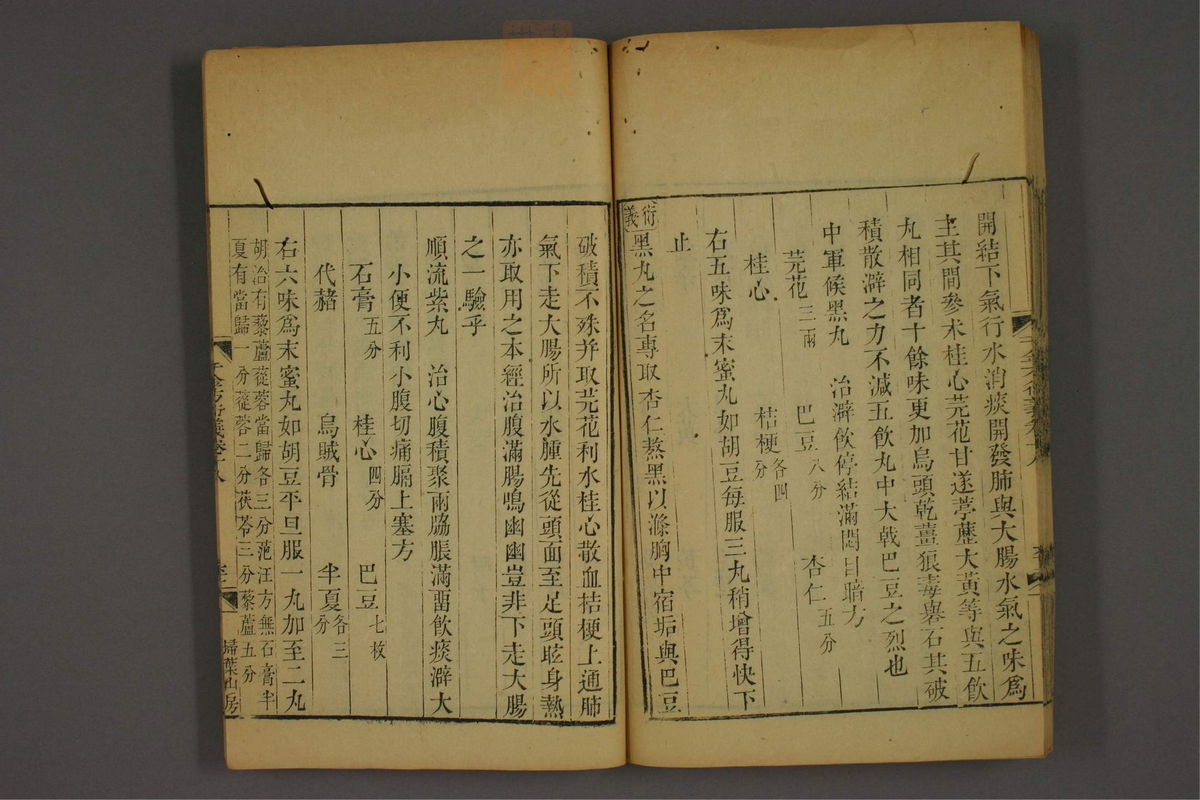 開結下氣行水消痰開發肺與大腸水氣之味為
主其間參朮桂心芫花甘遂葶藶大黃等與五飲
丸相同者十餘味更加烏頭乾薑狼毒礜石其破
積散澼之力不減五飲丸中大戟巴豆之烈也
中軍候黑丸 治澼飲停結滿悶目暗方
芫花三兩 巴豆八分 杏仁五分
桂心 桔梗各四分
右五味為末蜜丸如胡豆每服三丸稍增得快下
止
衍義 黑丸之名專取杏仁熬黑以滌胸中宿垢與巴豆
破積不殊并取芫花利水桂心散血桔梗上通肺
氣下走大腸所以水腫先從頭面至足頭眩身熱
亦取用之本經治腹滿腸鳴幽幽豈非下走大腸
之一驗乎
順流紫丸 治心腹積聚兩脇脹滿畱飲痰澼大
小便不利小腹切痛膈上塞方
石膏五分 桂心四分 巴豆七枚
代赭 烏賊骨 半夏各三分
右六味為末蜜丸如胡豆平旦服一丸加至二丸
胡洽有藜蘆蓯蓉當歸各三分范汪方無石膏半
夏有當歸一分蓯蓉二分茯苓三分藜蘆五分
掃葉山房